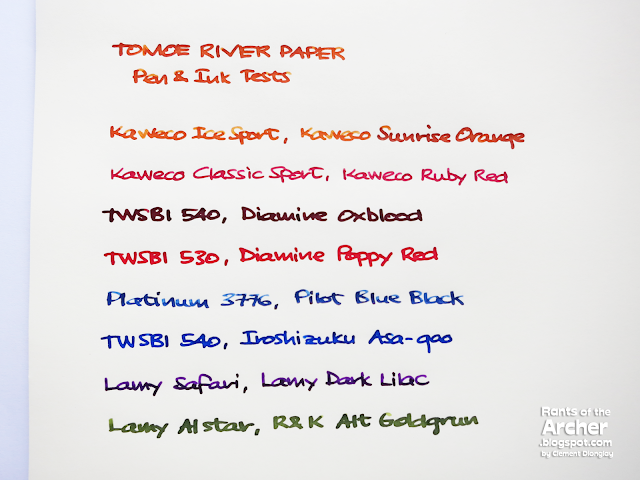 TOMOE RIVER PAPER
Pen & Ink Tests
Kaweco Ice Sport, Kaweco Sunrise Orange
Kaweco Classic Sport, Kaweco Ruby Red
TWSBI 540, Diamine Oxblood
TWSBI 530, Diamine Poppy Red
Platinum 3776, Pilot Blue Black
TWSBI 540, Iroshizuku Asa-gao
Lamy Safari, Lamy Dark Lilac
Lamy Alstar, R&K Alt Goldgrun
Rants of the
Archer
.blogspot.com
by Clement Dionglay